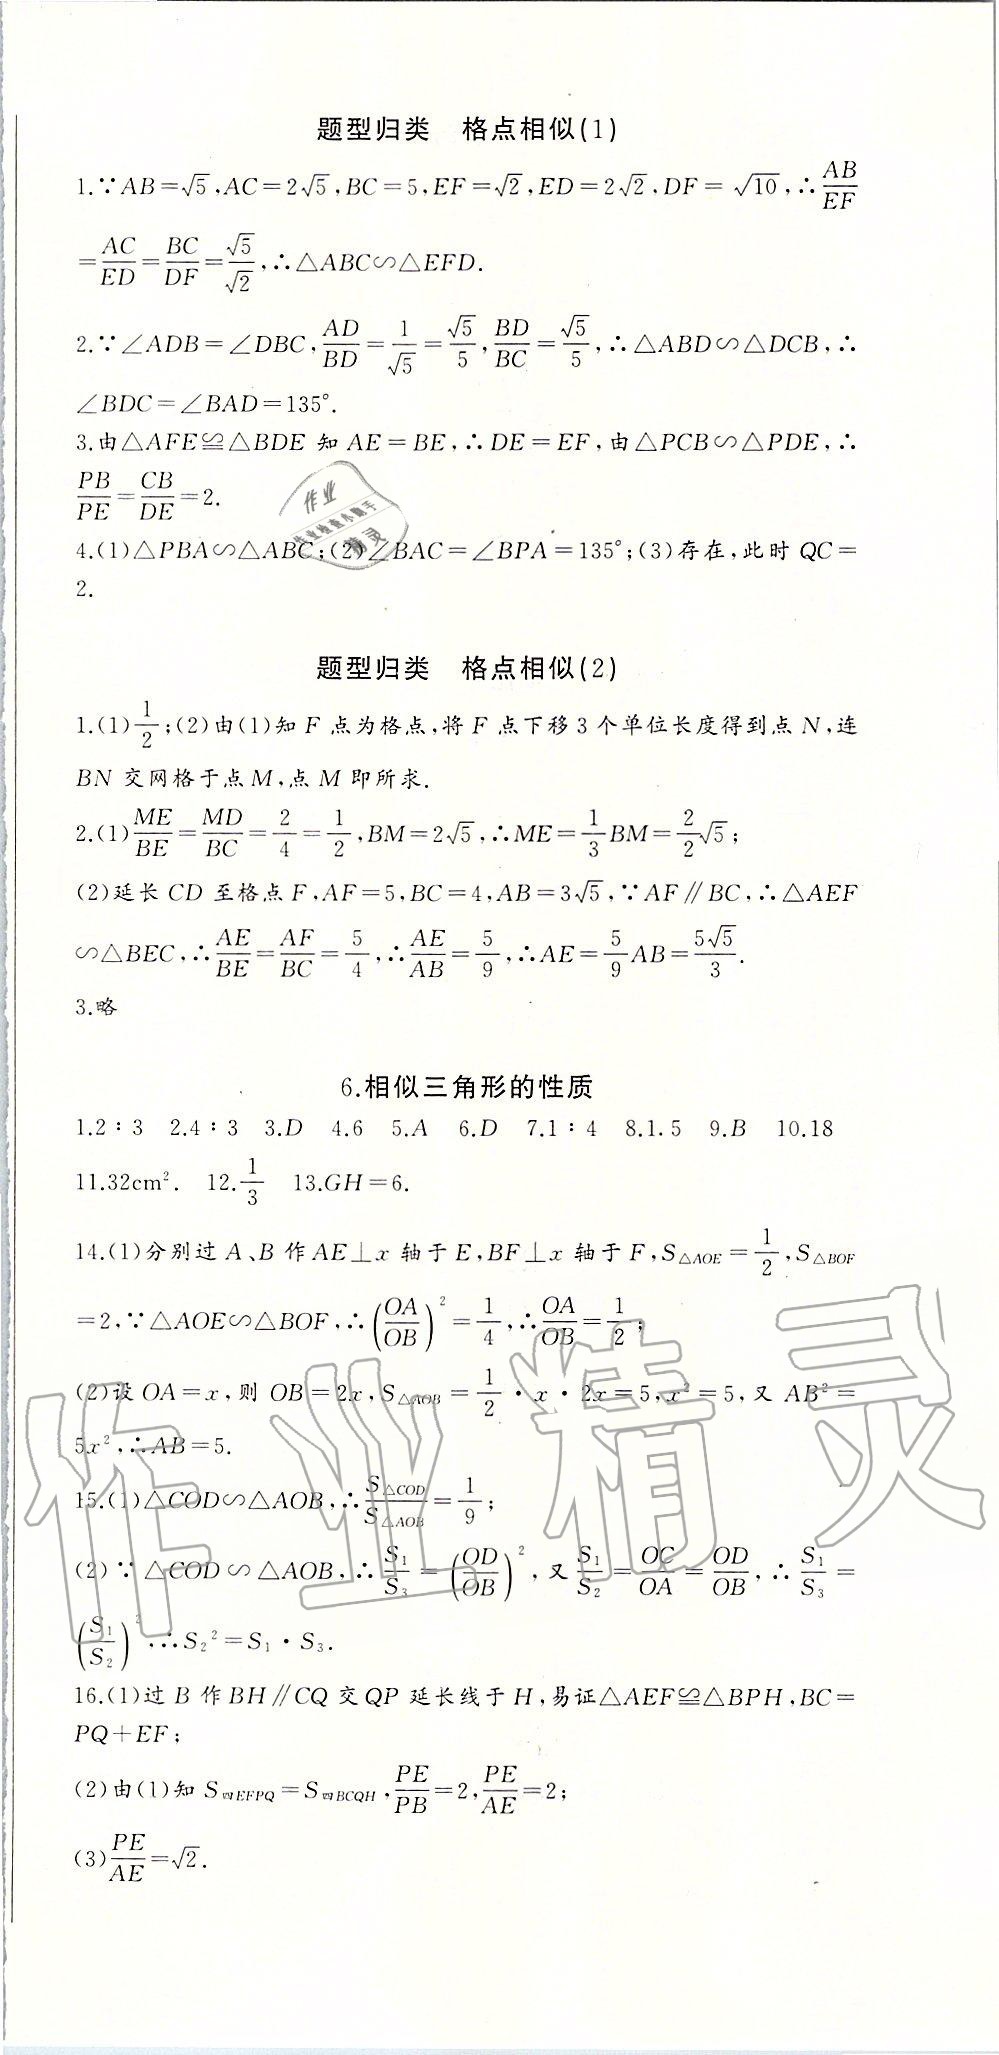 题型归类 格点相似(1)
1.∵AB=√5,AC=2√5,BC=5,EF=√2,ED=2√2,DF=√10,∴AB/EF
=AC/ED=BC/DF=√5/√2,∴△ABC∽△EFD.
2.∵∠ADB=∠DBC,AD/BD=1/√5=√5/5,BD/BC=√5/5,∴△ABD∽△DCB,∴
∠BDC=∠BAD=135°.
3.由△AFE≌△BDE 知 AE=BE,∴DE=EF,由△PCB∽△PDE,∴
PB/PE=CB/DE=2.
4.(1)△PBA∽△ABC;(2)∠BAC=∠BPA=135°;(3)存在,此时 QC=
2.
题型归类 格点相似(2)
1.(1)1/2;(2)由(1)知 F 点为格点,将 F 点下移 3 个单位长度得到点 N,连
BN 交网格于点 M,点 M 即所求.
2.(1)ME/BE=MD/BC=2/4=1/2,BM=2√5,∴ME=1/3BM=2/2√5;
(2)延长 CD 至格点 F,AF=5,BC=4,AB=3√5,∵AF∥BC,∴△AEF
∽△BEC,∴AE/BE=AF/BC=5/4,∴AE/AB=5/9,∴AE=5/9AB=5√5/3.
3.略
6.相似三角形的性质
1.2∶3 2.4∶3 3.D 4.6 5.A 6.D 7.1∶4 8.1.5 9.B 10.18
11.32cm². 12.1/3 13.GH=6.
14.(1)分别过 A、B 作 AE⊥x 轴于 E,BF⊥x 轴于 F,S△AOE=1/2,S△BOF
=2,∵△AOE∽△BOF,∴(OA/OB)²=1/4,∴OA/OB=1/2;
(2)设 OA=x,则 OB=2x,S△AOB=1/2·x·2x=5,x²=5,又 AB²=
5x²,∴AB=5.
15.(1)△COD∽△AOB,∴S△COD/S△AOB=1/9;
(2)∵△COD∽△AOB,∴S₁/S₃=(OD/OB)²,又S₁/S₂=OC/OA=OD/OB,∴S₁/S₃=
(S₁/S₂)²,∴S₂²=S₁·S₃.
16.(1)过 B 作 BH∥CQ 交 QP 延长线于 H,易证△AEF≌△BPH,BC=
PQ+EF;
(2)由(1)知 S四EFPQ=S四BCQH,PE/PB=2,PE/AE=2;
(3)PE/AE=√2.
作业
作业检查小助手
精灵
作业精灵